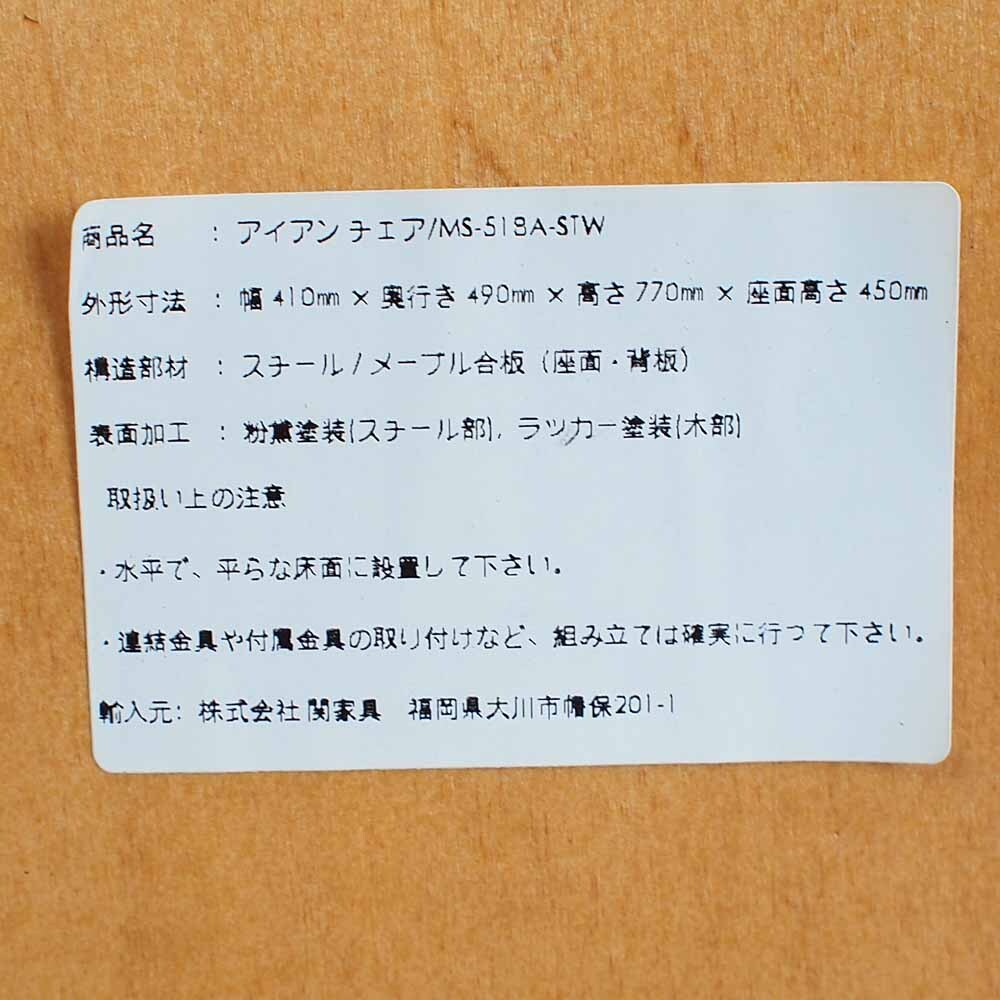 商品名 : アイアンチェア/MS-518A-STW
外形寸法 : 幅 410mm × 奥行き 490mm × 高さ 770mm × 座面高さ 450mm
構造部材 : スチール / メープル合板 (座面・背板)
表面加工 : 粉黨塗装(スチール部), ラツカー塗装(木部)
取扱い上の注意
・水平で、平らな床面に設置して下さい。
・連結金具や付属金具の取り付けなど、組み立ては確実に行つて下さい。
輸入元: 株式会社 関家具 福岡県大川市幡保201-1